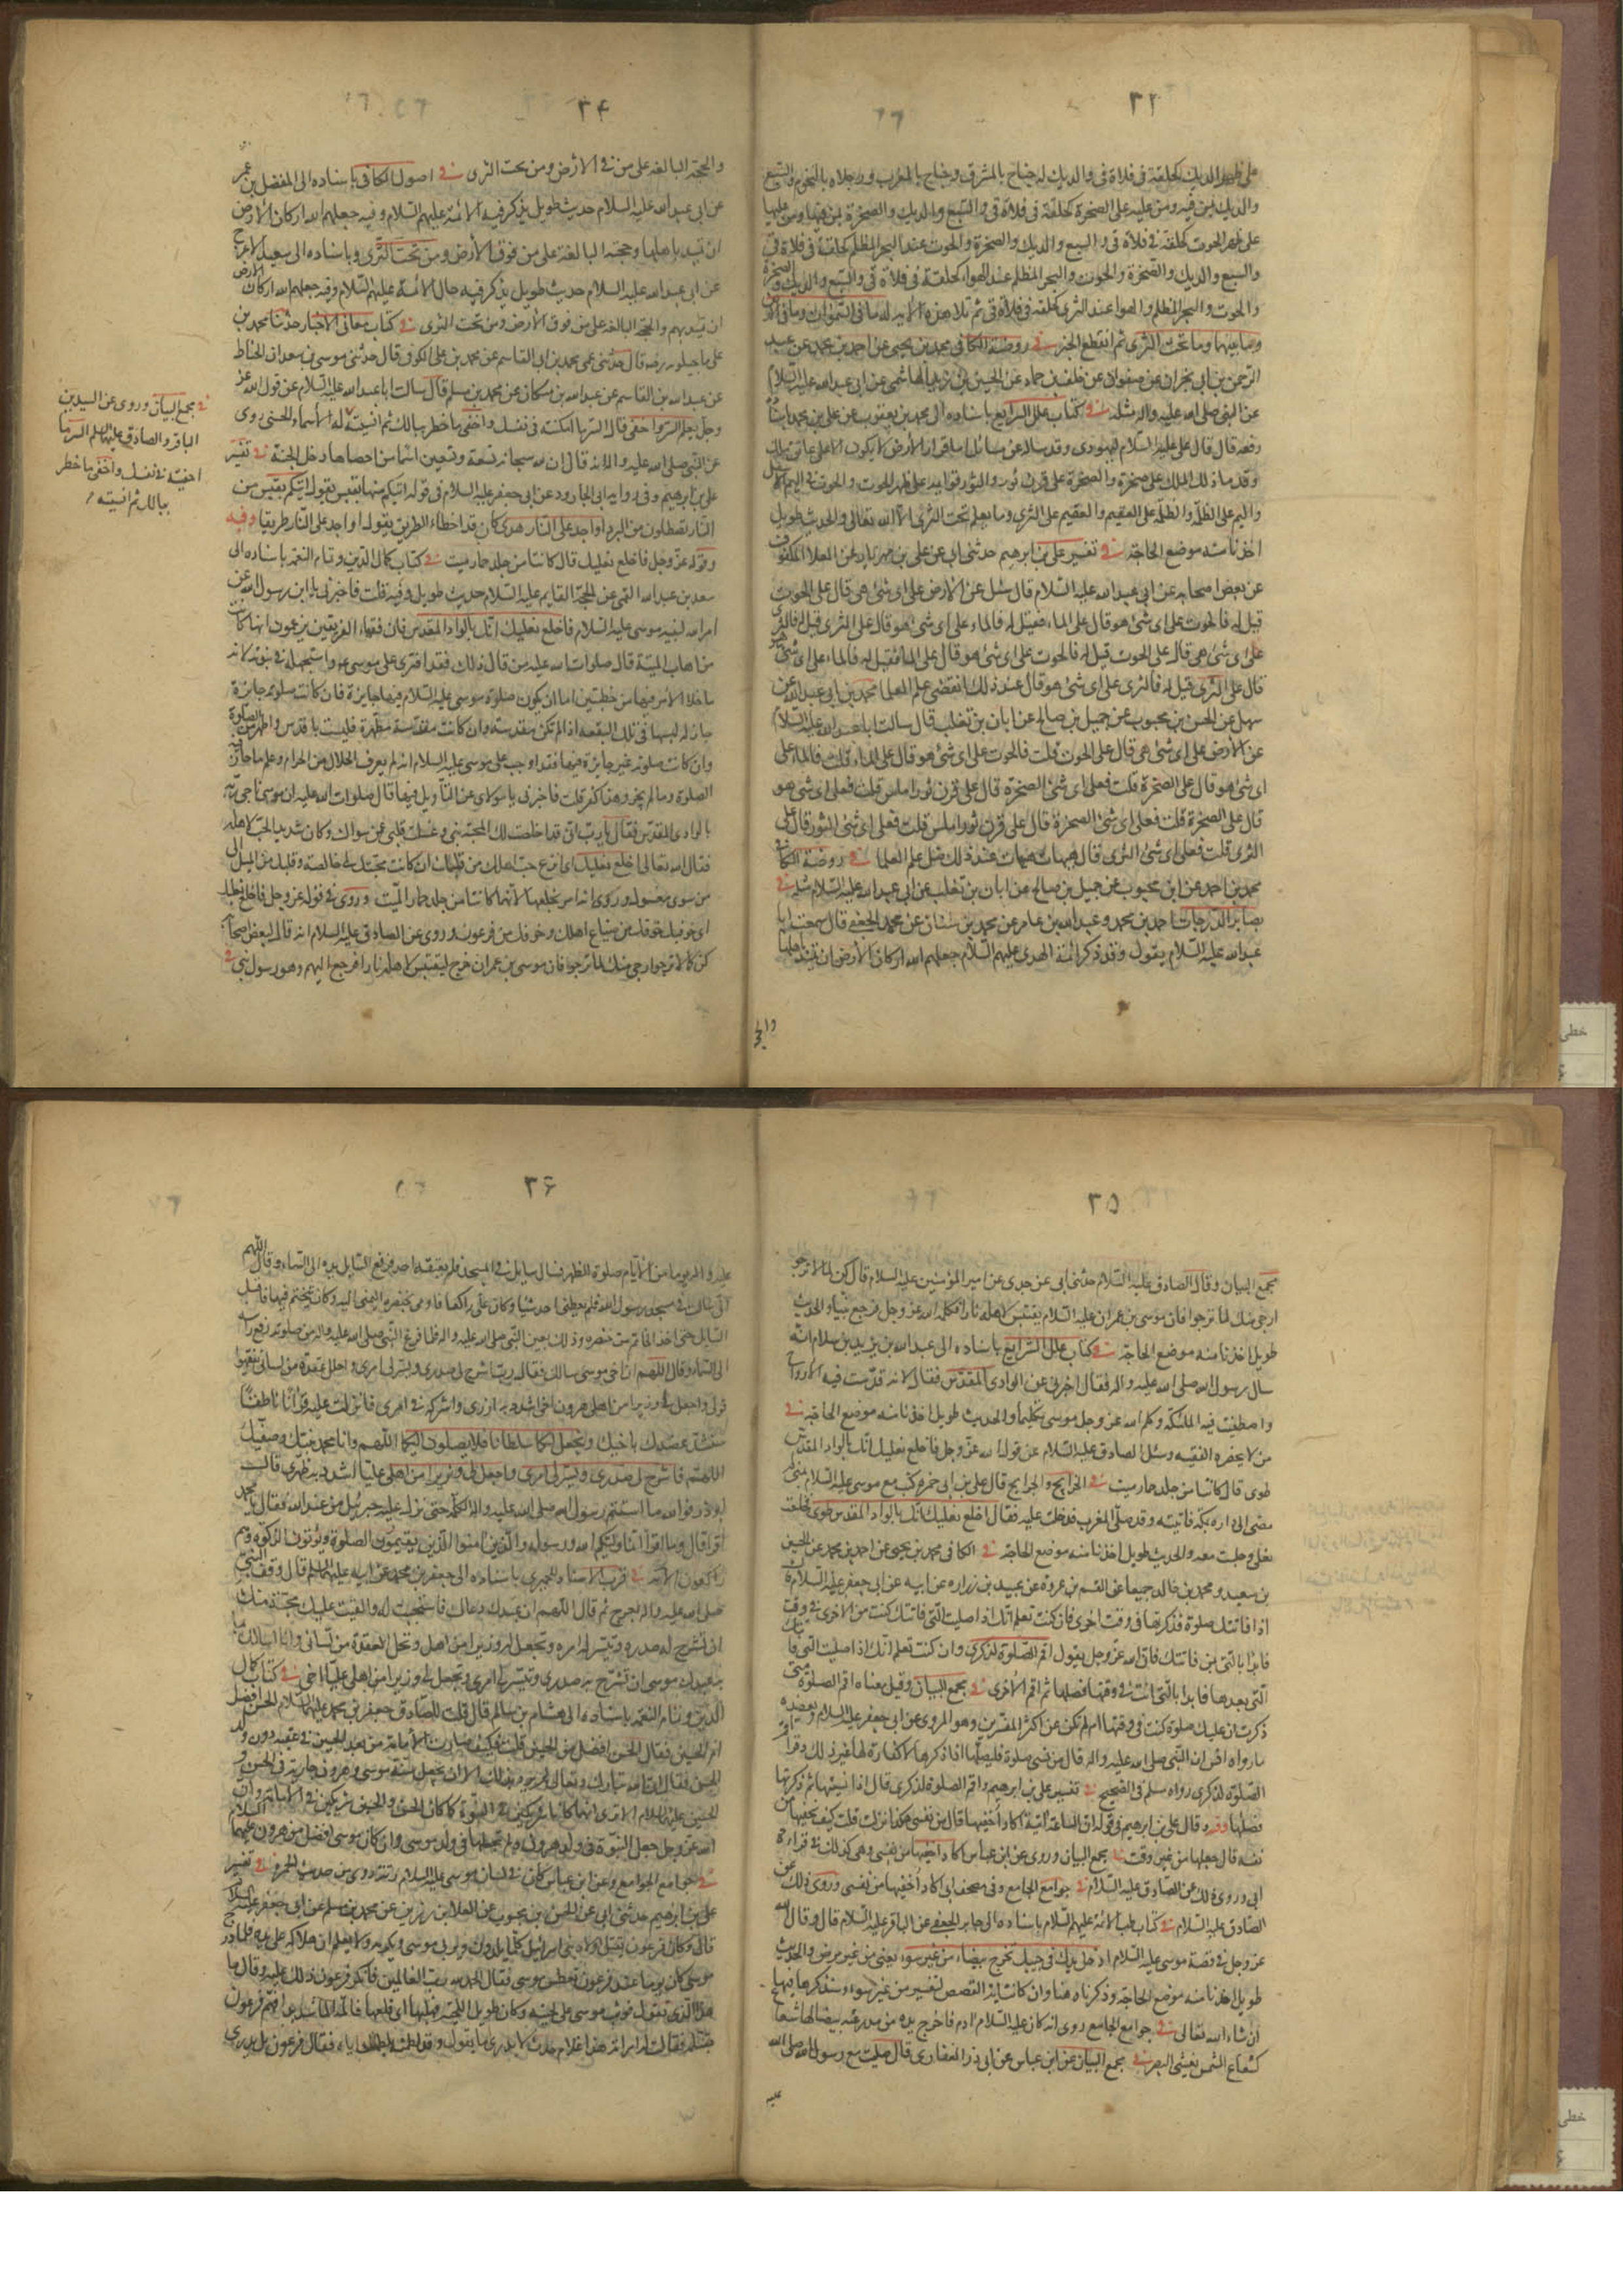 ٣٣
على ظهر الديك كحلقة فى فلاة قى والديك له جناح بالمشرق وجناح بالمغرب ورجلاه بالتخوم والسبع
والديك بمن فيه ومن عليه على الصخرة كحلقة فى فلاة قى والسبع والديك والصخرة بمن فيها ومن عليها
على ظهر الحوت كحلقة فى فلاة قى والسبع والديك والصخرة والحوت عند البحر المظلم كحلقة فى فلاة قى
والسبع والديك والصخرة والحوت والبحر المظلم عند الهواء كحلقة فى فلاة قى والسبع والديك والصخرة
والحوت والبحر المظلم والهوا عند الثرى كحلقة فى فلاة قى ثم تلا هذه الاية له ما فى السموات وما فى الارض
وما بينهما وما تحت الثرى ثم انقطع الخبر فى روضة الكافى محمد بن يحيى عن احمد بن محمد عن عبد
الرحمن بن ابى نجران عن صفوان عن خلف بن حماد عن الحسين بن زيد الهاشمى عن ابى عبد الله عليه السلام
عن النبى صلى الله عليه واله مثله فى كتاب علل الشرايع باسناده الى محمد بن يعقوب عن على بن محمد باسناده
رفعه قال قال على عليه السلام ليهودى وقد ساله عن مسائل اما قرار هذه الارض لا يكون الا على عاتق ملك
وقدما ذلك الملك على صخرة والصخرة على قرن ثور والثور قوايمه على ظهر الحوت والحوت فى اليم الاسفل
واليم على الظلمة والظلمة على العقيم والعقيم على الثرى وما يعلم تحت الثرى الا الله تعالى والحديث طويل
اخذنا منه موضع الحاجة فى تفسير على بن ابراهيم حدثنى ابى عن على بن مهزيار عن العلا المكفوف
عن بعض اصحابه عن ابى عبد الله عليه السلام قال سئل عن الارض على اى شئ هى قال على الحوت
قيل له فالحوت على اى شئ هو قال على الماء فقيل له فالماء على اى شئ هو قال على الثرى قيل له فالثرى
على اى شئ هى قال على الحوت قيل له فالحوت على اى شئ هو قال على الماء فقيل له فالماء على اى شئ هو
قال على الثرى قيل له فالثرى على اى شئ هو قال عند ذلك انقضى علم العلما محمد بن ابى عبد الله عن
سهل عن الحسن بن محبوب عن جميل بن صالح عن ابان بن تغلب قال سالت ابا عبد الله عليه السلام
عن الارض على اى شئ هى قال على الحوت قلت فالحوت على اى شئ هو قال على الماء قلت فالماء على
اى شئ هو قال على الصخرة قلت فعلى اى شئ الصخرة قال على قرن ثور املس قلت فعلى اى شئ هو
قال على الصخرة قلت فعلى اى شئ الصخرة قال على قرن ثور املس قلت فعلى اى شئ الثور قال على
الثرى قلت فعلى اى شئ الثرى قال هيهات هيهات عند ذلك ضل علم العلما فى روضة الكافى
محمد بن احمد عن ابن محبوب عن جميل بن صالح عن ابان بن تغلب عن ابى عبد الله عليه السلام مثله فى
بصاير الدرجات احمد بن محمد وعبد الله بن عامر عن محمد بن سنان عن محمد الجعفى قال سمعت ابا
عبد الله عليه السلام يقول وقد ذكر ائمة الهدى عليهم السلام جعلهم الله اركان الارض ان تميد باهلها
والحجة
٣٤
والحجة البالغة على من فى الارض ومن تحت الثرى فى اصول الكافى باسناده الى المفضل بن عمر
عن ابى عبد الله عليه السلام حديث طويل يذكر فيه الائمة عليهم السلام وفيه جعلهم الله اركان الارض
ان تميد باهلها وحجته البالغة على من فوق الارض ومن تحت الثرى وباسناده الى سعيد الاعرج
عن ابى عبد الله عليه السلام حديث طويل يذكر فيه حال الائمة عليهم السلام وفيه جعلهم الله اركان الارض
ان تميد بهم والحجة البالغة على من فوق الارض ومن تحت الثرى فى كتاب معانى الاخبار حدثنا محمد بن
على ماجيلويه رضه قال حدثنى عمى محمد بن ابى القاسم عن محمد بن على الكوفى قال حدثنى موسى بن سعدان الحناط
عن عبد الله بن القاسم عن عبد الله بن مسكان عن محمد بن مسلم قال سالت ابا عبد الله عليه السلام عن قول الله عز
وجل يعلم السر واخفى قال السر ما اكننته فى نفسك واخفى ما خطر ببالك ثم انسيته له الاسماء الحسنى روى
عن النبى صلى الله عليه واله انه قال ان لله سبحانه تسعة وتسعين اسما من احصاها دخل الجنة فى تفسير
على بن ابراهيم وفى رواية ابى الجارود عن ابى جعفر عليه السلام فى قوله اتيكم منها بقبس يقول اتيكم بقبس من
النار تصطلون من البرد او اجد على النار هدى كان قد اخطاء الطريق يقول او اجد على النار طريقا وفيه
وقوله عز وجل فاخلع نعليك قال كانتا من جلد حمار ميت فى كتاب كمال الدين وتمام النعمة باسناده الى
سعد بن عبد الله القمى عن الحجة القايم عليه السلام حديث طويل وفيه قلت فاخبرنى يا ابن رسول الله عن
امر الله لنبيه موسى عليه السلام فاخلع نعليك انك بالواد المقدس فان فقهاء الفريقين يزعمون انها كانت
من اهاب الميتة قال صلوات الله عليه من قال ذلك فقد افترى على موسى عم واستجهله فى نبوته لانه
ما خلا الامر فيها من خطبتين اما ان يكون صلوة موسى عليه السلام فيها جايزة فان كانت صلوته جايزة
جاز له لبسها فى تلك البقعة اذ لم تكن مقدسة وان كانت مقدسة مطهرة فليست باقدس واطهر من الصلوة
وان كانت صلوته غير جايزة فيها فقد اوجب على موسى عليه السلام انه لم يعرف الحلال من الحرام وعلم ما جاز فيه
الصلوة وما لم يجز وهذا كفر قلت فاخبرنى يا مولاى عن التاويل فيها قال صلوات الله عليه ان موسى ناجى ربه
بالوادى المقدس فقال يا رب انى قد اخلصت لك المحبة منى وغسلت قلبى عمن سواك وكان شديد الحب لاهله
فقال الله تعالى اخلع نعليك اى انزع حب اهلك من قلبك ان كانت محبتك لى خالصة وقلبك من الميل الى
من سوى مغسول وروى انه امر بخلعها لانهما كانتا من جلد حمار الميت وروى فى قوله عز وجل فاخلع نعليك
اى خوفيك خوفك من ضياع اهلك وخوفك من فرعون وروى عن الصادق عليه السلام انه قال لبعض اصحابه
كن لما لا ترجو ارجى منك لما ترجو فان موسى بن عمران خرج ليقتبس لاهله نارا فرجع اليهم وهو رسول نبى فى
فى مجمع البيان وروى عن السيدين
الباقر والصادق عليهما السلم السر ما
اخفيته فى نفسك واخفى ما خطر
ببالك ثم انسيته
٣٥
مجمع البيان وقال الصادق عليه السلام حدثنى ابى عن جدى عن امير المؤمنين عليه السلام قال كن لما لا ترجو
ارجى منك لما ترجو فان موسى بن عمران عليه السلام يقتبس لاهله نارا فكلمه الله عز وجل فرجع نبيا والحديث
طويل اخذنا منه موضع الحاجة فى كتاب علل الشرايع باسناده الى عبد الله بن يزيد بن سلام انه
سال رسول الله صلى الله عليه واله فقال اخبرنى عن الوادى المقدس فقال لانه قدست فيه الارواح
واصطفيت فيه الملئكة وكلم الله عز وجل موسى تكليما والحديث طويل اخذنا منه موضع الحاجة فى
من لا يحضره الفقيه وسئل الصادق عليه السلام عن قول الله عز وجل فاخلع نعليك انك بالواد المقدس
طوى قال كانتا من جلد حمار ميت فى الخرايج والجرايح قال على بن ابى حمزه كنت مع موسى عليه السلام بمنى
مضى الى داره بمكة فاتيته وقد صلى المغرب فدخلت عليه فقال اخلع نعليك انك بالواد المقدس طوى فخلعت
نعلى وجلست معه والحديث طويل اخذنا منه موضع الحاجة فى الكافى محمد بن يحيى عن احمد بن محمد عن الحسين
بن سعيد ومحمد بن خالد جميعا عن القسم بن عروة عن عبيد بن زراره عن ابيه عن ابى جعفر عليه السلام قال
اذا فاتتك صلوة فذكرتها فى وقت اخرى فان كنت تعلم انك اذا صليت التى فاتتك كنت من الاخرى فى وقت
فابدا بالتى فاتتك فان الله عز وجل يقول اقم الصلوة لذكرى وان كنت تعلم انك اذا صليت التى فاتتك
التى بعدها فابدا بالتى انت فى وقتها فصلها ثم اقم الاخرى فى مجمع البيان وقيل معناه اقم الصلوة متى
ذكرت ان عليك صلوة كنت فى وقتها ام لم تكن عن اكثر المفسرين وهو المروى عن ابى جعفر عليه السلام ويعضده
ما رواه انس ان النبى صلى الله عليه واله قال من نسى صلوة فليصلها اذا ذكرها لا كفارة لها غير ذلك وقرا اقم
الصلوة لذكرى رواه مسلم فى الصحيح فى تفسير على بن ابراهيم واقم الصلوة لذكرى قال اذا نسيتها ثم ذكرتها
فصلها وفيه قال على بن ابراهيم فى قوله ان الساعة اتية اكاد اخفيها قال من نفسى هكذا نزلت قلت كيف يخفيها من
نفسه قال جعلها من غير وقت فى مجمع البيان وروى عن ابن عباس اكاد اخفيها من نفسى وهى كذلك فى قراءة
ابى وروى ذلك عن الصادق عليه السلام فى جوامع الجامع وفى مصحف ابى اكاد اخفيها من نفسى وروى ذلك عن
الصادق عليه السلام فى كتاب طب الائمة عليهم السلام باسناده الى جابر الجعفى عن الباقر عليه السلام قال وقال الله
عز وجل فى قصة موسى عليه السلام ادخل يدك فى جيبك تخرج بيضاء من غير سوء يعنى من غير مرض والحديث
طويل اخذنا منه موضع الحاجة وذكرناه هنا وان كانت اية القصص لتفسير من غير سوء وسنذكرها فيها
ان شاء الله تعالى فى جوامع الجامع روى انه كان عليه السلام ادم فاخرج يده من مدرعته بيضا لها شعاع
كشعاع الشمس يغشى البصر فى مجمع البيان عن ابن عباس عن ابى ذر الغفارى قال صليت مع رسول الله صلى الله
عليه
٣۶
عليه واله يوما من الايام صلوة الظهر فسال سايل فى المسجد فلم يعطه احد فرفع السايل يده الى السماء وقال اللهم
انى سالت فى مسجد رسول الله فلم يعطنى احد شيئا وكان على راكعا فاومى بخنصره اليمنى اليه وكان يتختم فيها فاقبل
السايل حتى اخذ الخاتم من خنصره وذلك بعين النبى صلى الله عليه واله فلما فرغ النبى صلى الله عليه واله من صلوته رفع راسه
الى السماء وقال اللهم ان اخى موسى سالك فقال رب اشرح لى صدرى ويسر لى امرى واحلل عقدة من لسانى يفقهوا
قولى واجعل لى وزيرا من اهلى هرون اخى اشدد به ازرى واشركه فى امرى فانزلت عليه قرانا ناطقا
سنشد عضدك باخيك ونجعل لكما سلطانا فلا يصلون اليكما اللهم وانا محمد نبيك وصفيك
اللهم فاشرح لى صدرى ويسر لى امرى واجعل لى وزيرا من اهلى عليا اشدد به ظهرى قال
ابو ذر فوالله ما استتم رسول الله صلى الله عليه واله الكلمة حتى نزل عليه جبرئيل من عند الله فقال يا محمد
اقرا قال وما اقرا انما وليكم الله ورسوله والذين امنوا الذين يقيمون الصلوة ويؤتون الزكوة وهم
راكعون الاية فى قرب الاسناد للحميرى باسناده الى جعفر بن محمد عن ابيه عليهما السلم قال وقف النبى
صلى الله عليه واله بمعرج ثم قال اللهم ان عبدك دعاك فاستجبت له والقيت عليه محبة منك
ان تشرح له صدره وتيسر له امره وتجعل له وزيرا من اهله وتحل العقدة من لسانه وانا اسالك بما
سالك عبدك موسى ان تشرح به صدرى وتيسر لى امرى وتجعل لى وزيرا من اهلى عليا اخى فى كتاب كمال
الدين وتمام النعمة باسناده الى هشام بن سالم قال قلت للصادق جعفر بن محمد عليهما السلام الحسن افضل
ام الحسين فقال الحسن افضل من الحسين قلت فكيف صارت الامامة من بعد الحسين فى عقبه دون ولد
الحسن فقال ان الله تبارك وتعالى لم يرد بذلك الا ان يجعل سنة موسى وهرون جارية فى الحسن و
الحسين عليهما السلام الا ترى انهما كانا شريكين فى النبوة كما كان الحسن والحسين شريكين فى الامامة وان
الله عز وجل جعل النبوة فى ولد هرون ولم يجعلها فى ولد موسى وان كان موسى افضل من هرون عليهما السلام
فى جوامع الجوامع وعن ابن عباس كان فى لسان موسى عليه السلام رتة فى تفسير
على بن ابراهيم حدثنى ابى عن الحسن بن محبوب عن العلا بن رزين عن محمد بن مسلم عن ابى جعفر عليه السلام
قال وكان فرعون يقتل اولاد بنى اسرائيل كلما يلدون ويربى موسى ويكرمه ولا يعلم ان هلاكه على يده فلما درج
موسى كان يوما عند فرعون فعطس موسى فقال الحمد لله رب العالمين فانكر فرعون ذلك عليه وقال ما
هذا الذى تقول فوثب موسى على لحيته وكان طويل اللحية فهلبها اى قلعها فالمه الما شديدا فهم فرعون
بقتله فقالت له امراته هذا غلام حدث لا يدرى ما يقول فقال فرعون بل يدرى
خطى
خطى